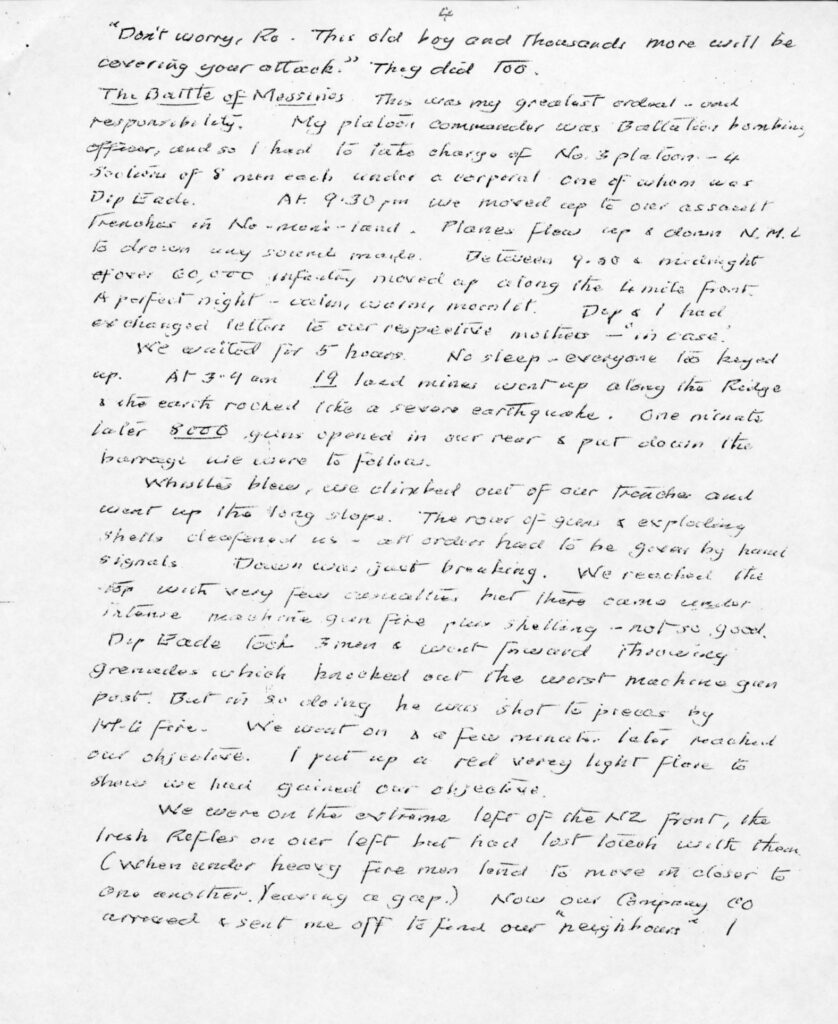 4
"Don't worry, Ro. This old boy and thousands more will be
covering your attack." They did too.
The Battle of Messines This was my greatest ordeal - and
responsibility. My platoon commander was Battalion bombing
officer, and so I had to take charge of No. 3 platoon - 4
sections of 8 men each under a corporal one of whom was
Dip Eade. At 9.30 pm we moved up to our assault
trenches in No-man's-land. Planes flew up & down N.M.L
to drown any sound made. Between 9.30 & midnight
over 60,000 infantry moved up along the 4 mile front.
A perfect night - calm, warm, moonlit. Dip & I had
exchanged letters to our respective mothers - "in case".
We waited for 5 hours. No sleep - everyone too keyed
up. At 3-9 am 19 land mines went up along the Ridge
& the earth rocked like a severe earthquake. One minute
later 8000 guns opened in our rear & put down the
barrage we were to follow.
Whistles blew, we climbed out of our trenches and
went up the long slope. The roar of guns & exploding
shells deafened us - all orders had to be given by hand
signals. Dawn was just breaking. We reached the
top with very few casualties but there came under
intense machine gun fire plus shelling - not so good.
Dip Eade took 3 men & went forward throwing
grenades which knocked out the worst machine gun
post. But in so doing he was shot to pieces by
M-G fire. We went on & a few minutes later reached
our objective. I put up a red verey light flare to
show we had gained our objective.
We were on the extreme left of the NZ front, the
Irish Rifles on our left but had lost touch with them
(When under heavy fire men tend to move in closer to
one another, leaving a gap.) Now our Company CO
arrived & sent me off to find our "neighbours" I